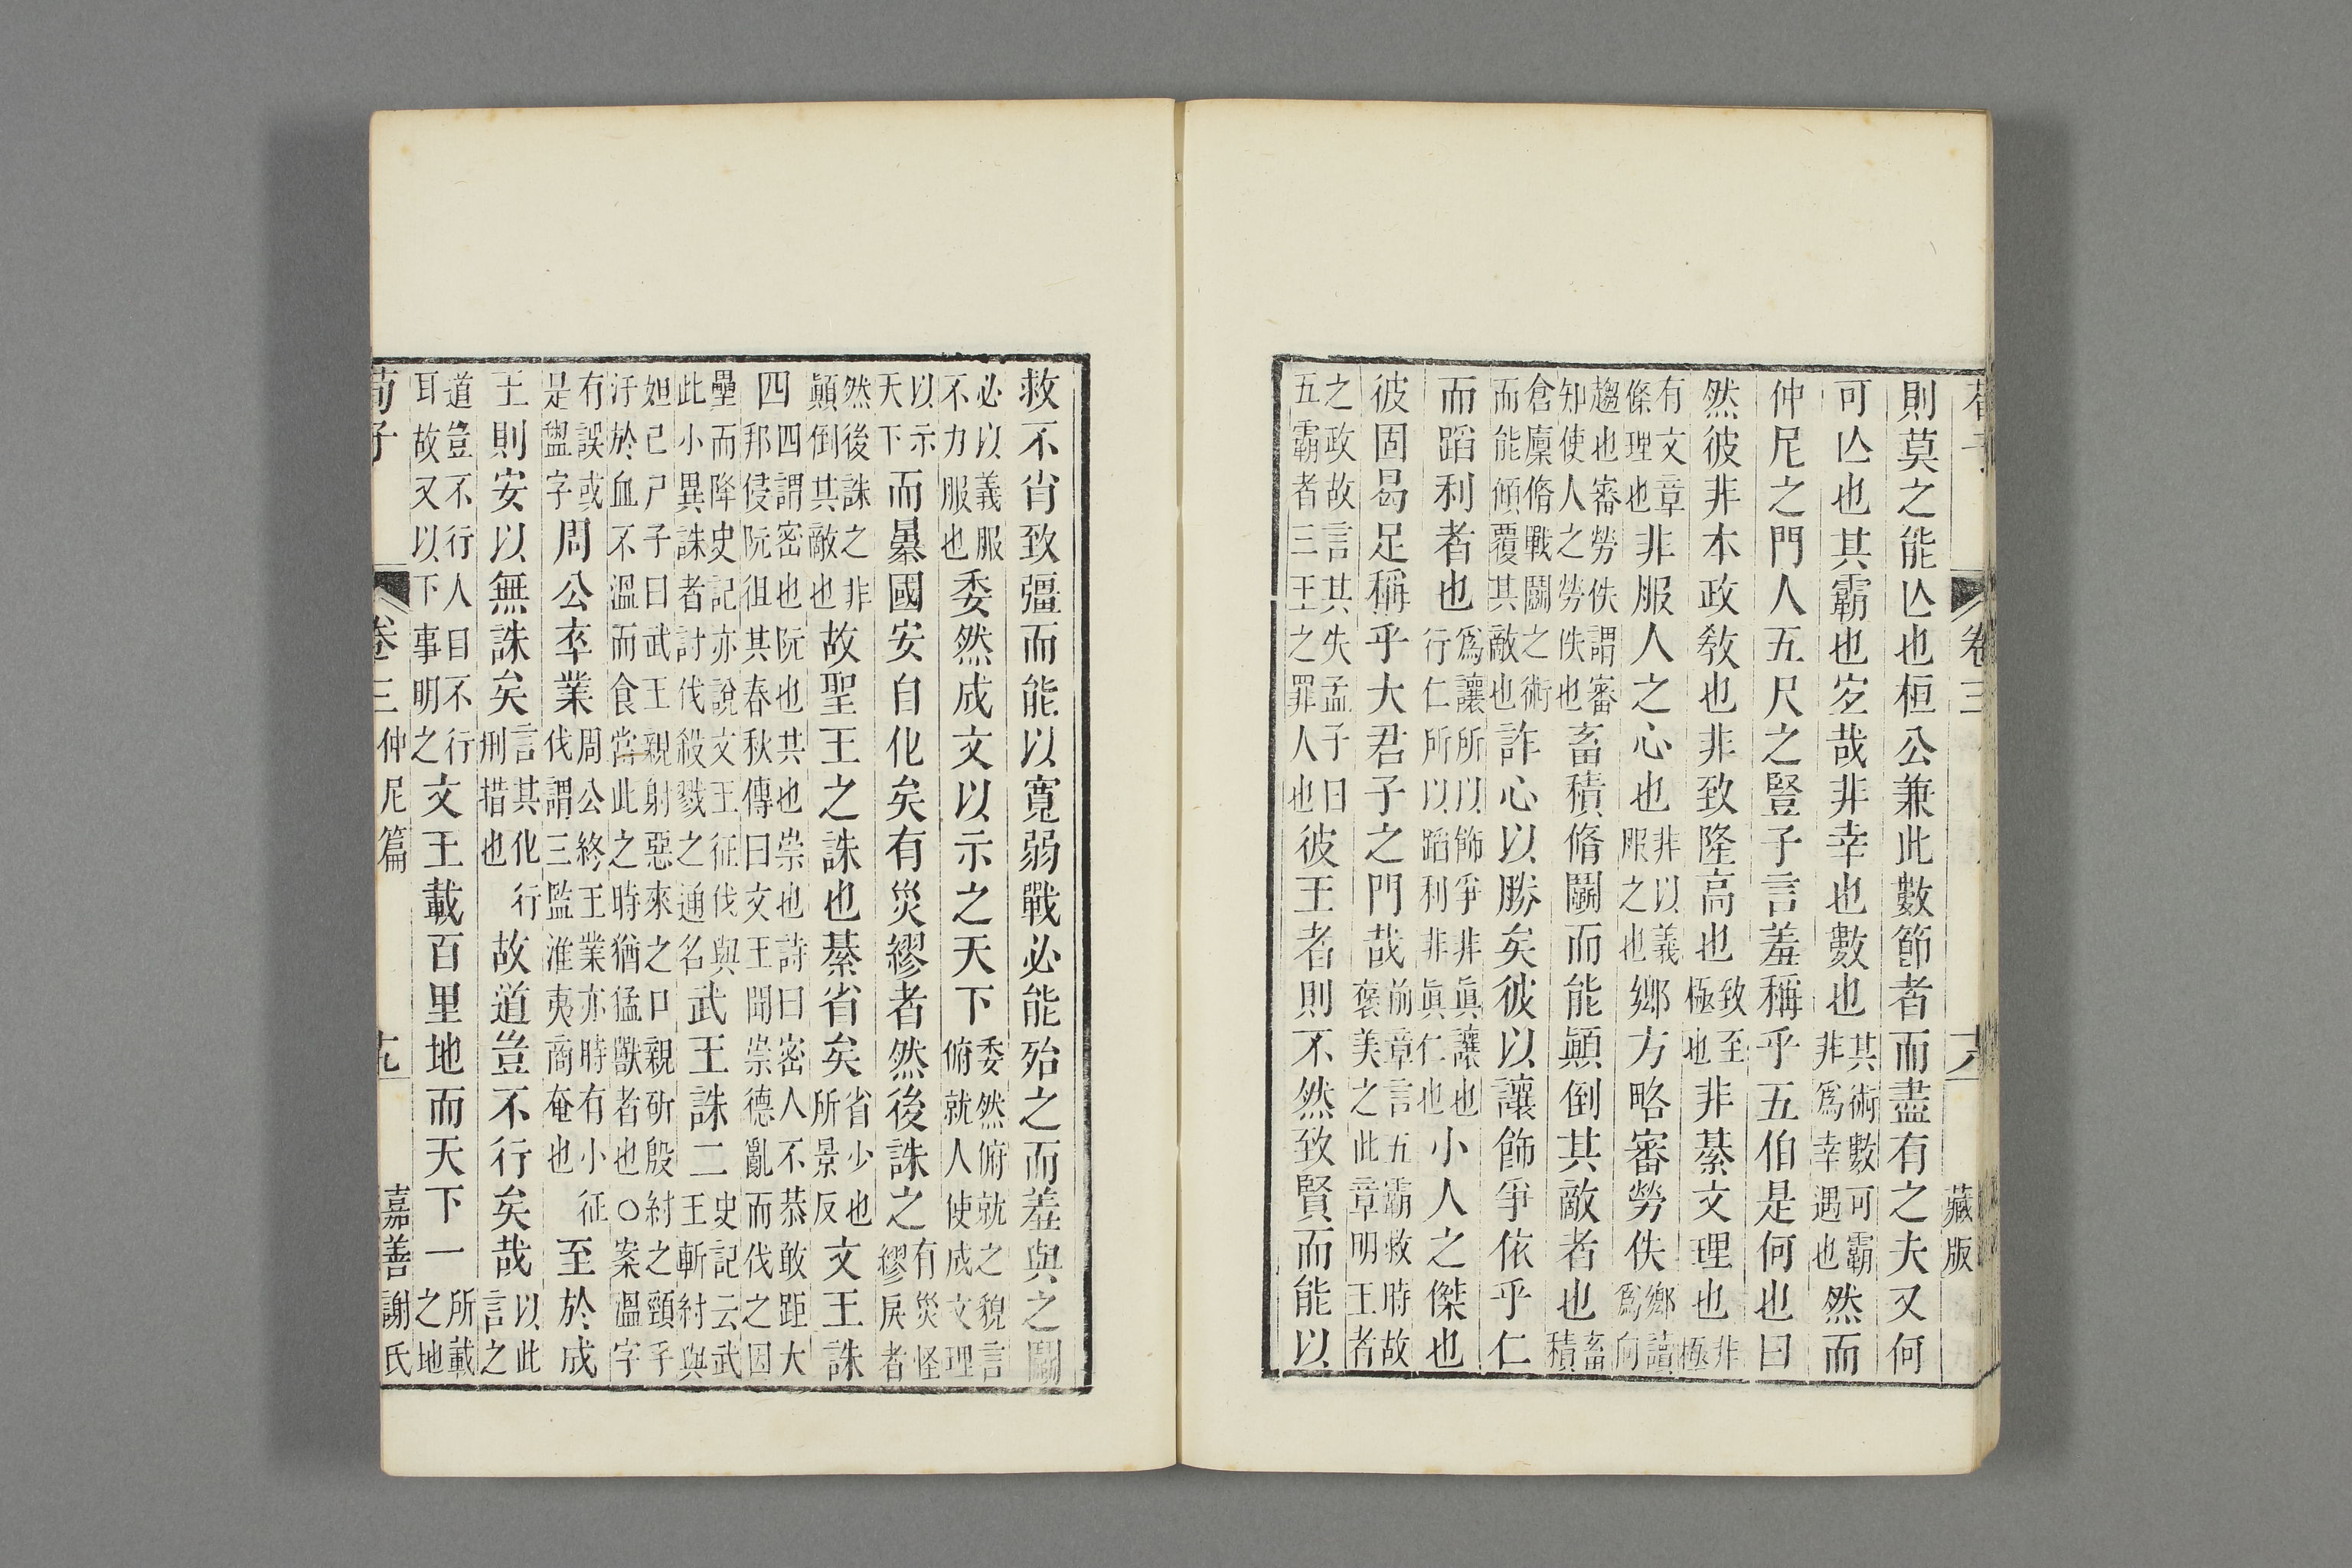 卷三 藏版
則莫之能亾也桓公兼此數節者而盡有之夫又何
可亾也其霸也宐哉非幸也數也其術數可霸非爲幸遇也然而
仲尼之門人五尺之豎子言羞稱乎五伯是何也曰
然彼非本政敎也非致隆高也致至極也非綦文理也非極
有文章條理也非服人之心也非以義服之也鄉方略審勞佚鄉讀爲向
趨也審勞佚謂審知使人之勞佚也畜積脩鬭而能顚倒其敵者也畜積
倉廩脩戰鬭之術而能傾覆其敵也詐心以勝矣彼以讓飾爭依乎仁
而蹈利者也爲讓所以飾爭非眞讓也行仁所以蹈利非眞仁也小人之傑也
彼固曷足稱乎大君子之門哉前章言五霸救時故褒美之此章明王者
之政故言其失孟子曰五霸者三王之罪人也彼王者則不然致賢而能以
救不肖致彊而能以寬弱戰必能殆之而羞與之鬭
必以義服不力服也委然成文以示之天下委然俯就之貌言俯就人使成文理
以示天下而暴國安自化矣有災繆者然後誅之有災怪繆戾者
然後誅之非顚倒其敵也故聖王之誅也綦省矣省少也所景反文王誅
四四謂密也阮也其也崇也詩曰密人不恭敢距大邦侵阮徂其春秋傳曰文王聞崇德亂而伐之因
壘而降史記亦說文王征伐與此小異誅者討伐殺戮之通名武王誅二史記云武王斬紂與
妲己尸子曰武王親射惡來之口親斫殷紂之頸手汙於血不溫而食當此之時猶猛獸者也○案溫字
有誤或是盥字周公卒業周公終王業亦時有小征伐謂三監淮夷商奄也至於成
王則安以無誅矣言其化行刑措也故道豈不行矣哉以此言之
道豈不行人自不行耳故又以下事明之文王載百里地而天下一所載之地
荀子 卷三 仲尼篇 十九 嘉善謝氏